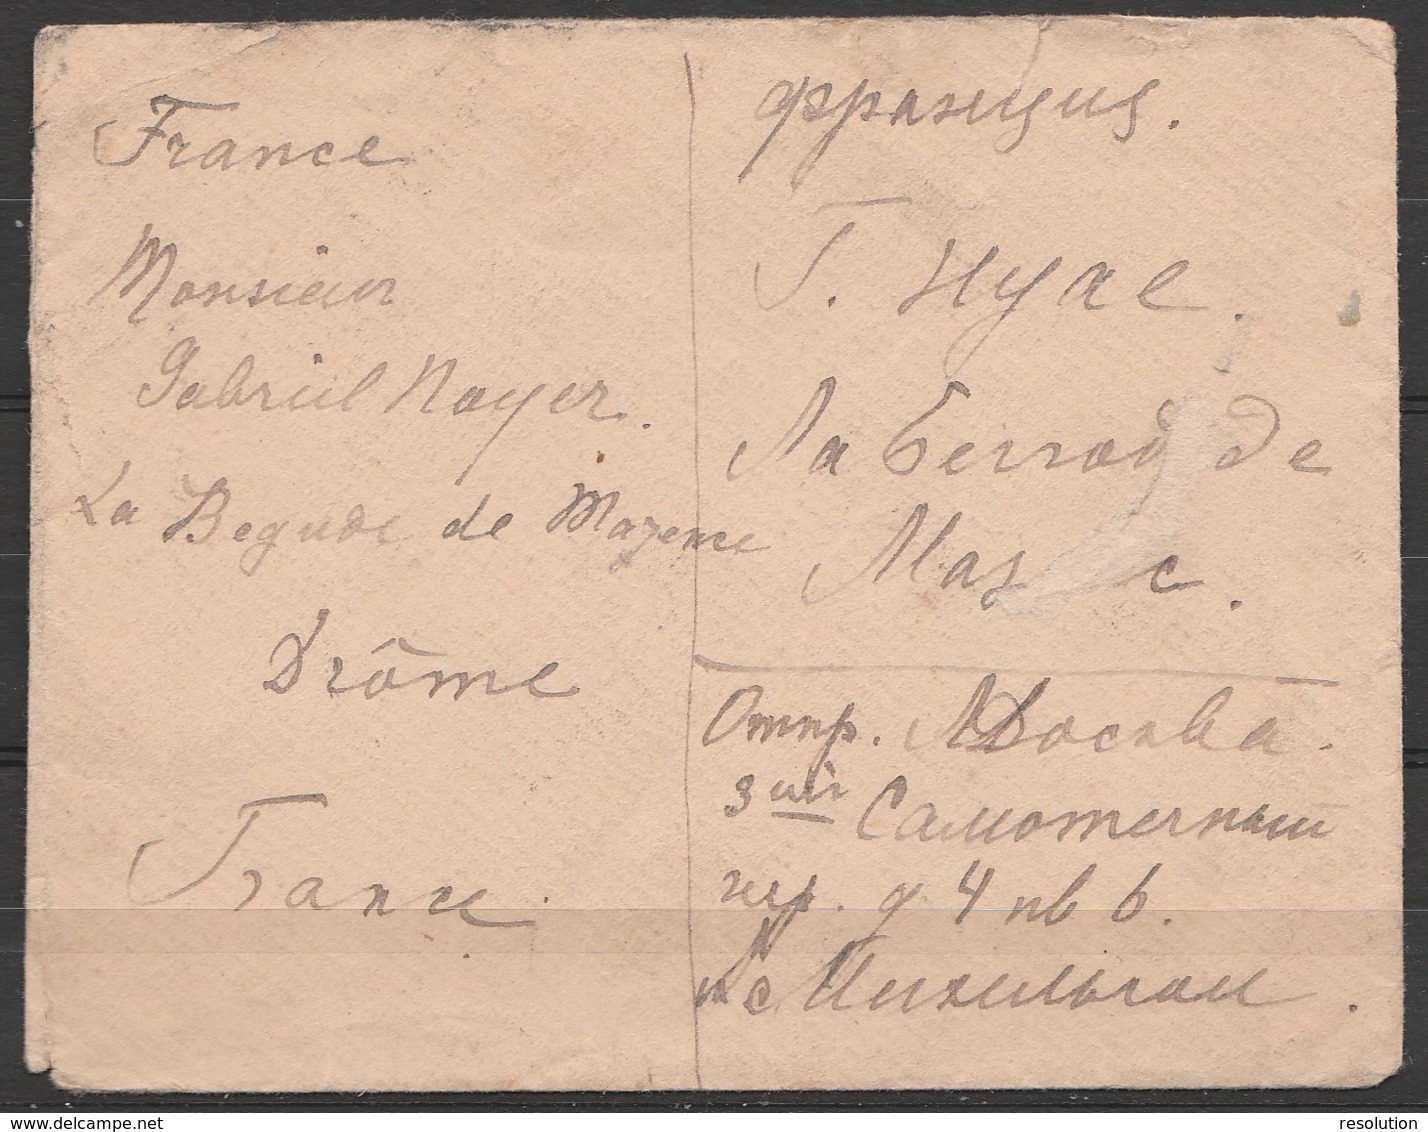 France
Monsieur
Gabriel Noyer.
La Begude de Mazenc
Drôme
France
Франция.
Г. Нуае.
Ла Бегюд де
Маз с.
Отпр. Москва.
3ий Самотечный
пер. д 4 кв 6.
delcampe.net
resolution